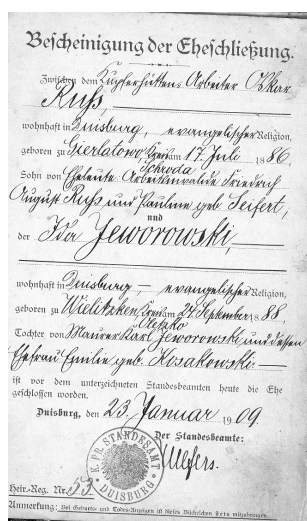 Bescheinigung der Eheschließung.
Zwischen dem Kupferhütten-Arbeiter Oskar
Ruß,
wohnhaft in Duisburg, evangelischer Religion,
geboren zu Gierlatowo Kreis am 17. Juli 1886.
Schroda
Sohn von Eheleute Friedrich
August Ruß und Pauline geb. Seifert,
und
der Ida Jeworowski,
wohnhaft in Duisburg – evangelischer Religion,
geboren zu Wielitzken Kreis am 24. September 1888
Oletzko
Tochter von Maurer Karl Jeworowski und dessen
Ehefrau Emilie geb. Kosakowski.
ist vor dem unterzeichneten Standesbeamten heute die Ehe
geschlossen worden.
Duisburg, den 23. Januar 1909.
Der Standesbeamte:
K. PR. STANDESAMT DUISBURG
Heir.-Reg. Nr. 53.
Anmerkung: Bei Geburts- und Todes-Anzeigen ist dieses Büchelchen stets mitzubringen.